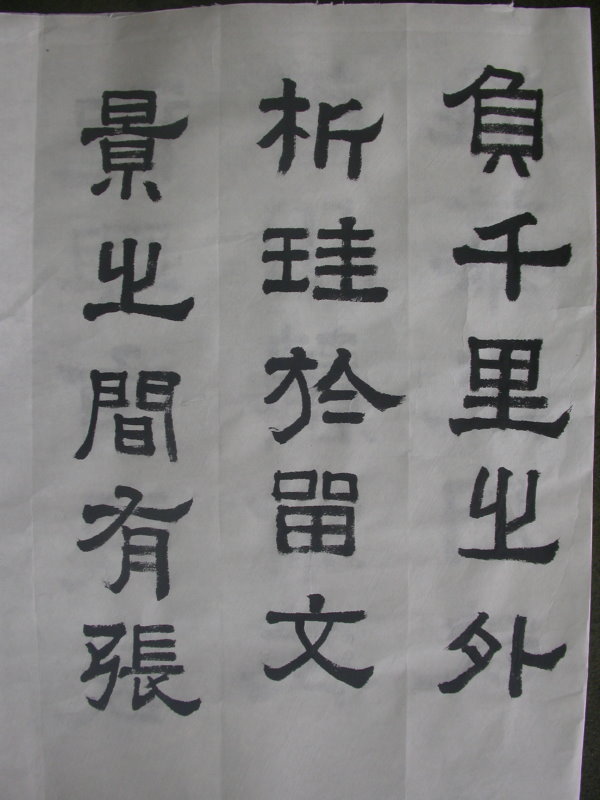 負千里之外
析珪於留文
景之間有張